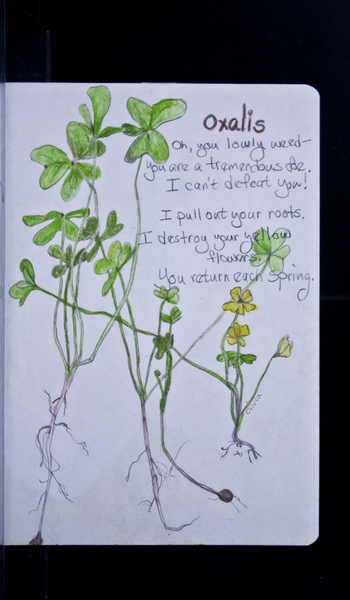 Oxalis
Oh, you lowly weed-
you are a tremendous foe.
I can't defeat you!
I pull out your roots.
I destroy your yellow
flowers.
You return each Spring.
Olivia